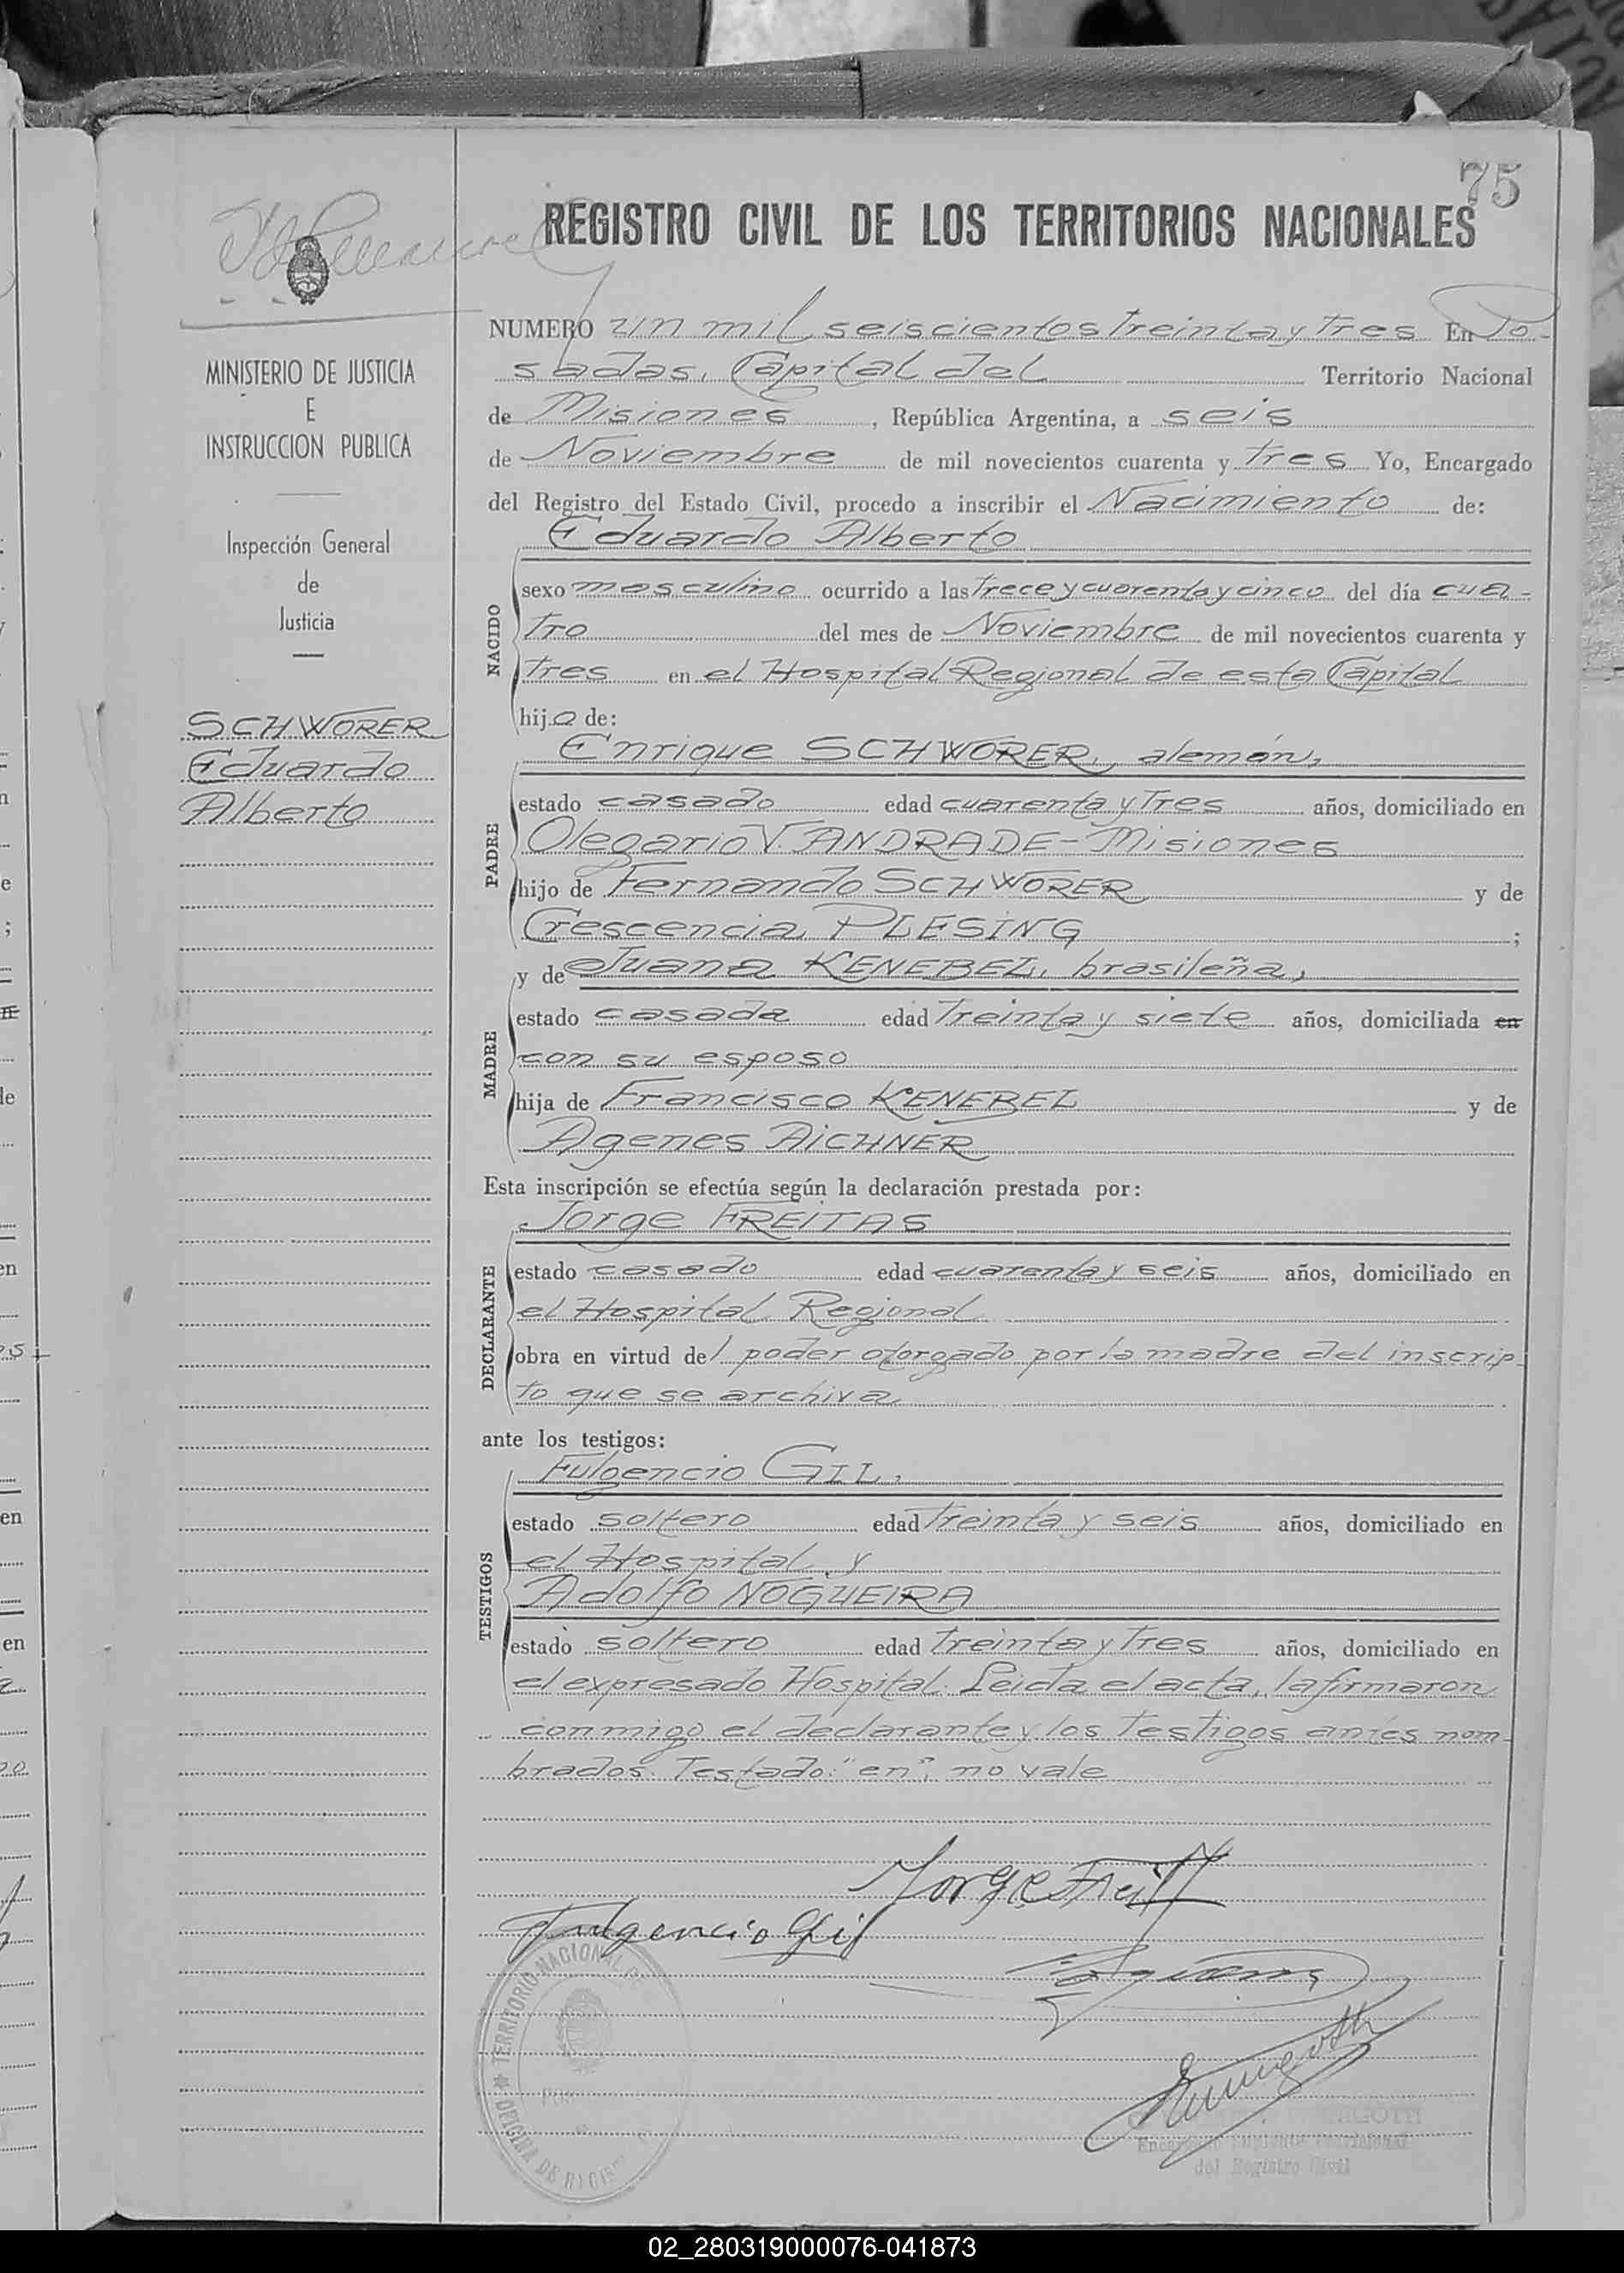 75
REGISTRO CIVIL DE LOS TERRITORIOS NACIONALES
MINISTERIO DE JUSTICIA
E
INSTRUCCION PUBLICA
Inspección General
de
Justicia
SCHWÖRER
Eduardo
Alberto
NUMERO un mil seiscientos treinta y tres En Po-
sadas, Capital del Territorio Nacional
de Misiones, República Argentina, a seis
de Noviembre de mil novecientos cuarenta y tres Yo, Encargado
del Registro del Estado Civil, procedo a inscribir el Nacimiento de:
Eduardo Alberto
NACIDO
sexo masculino ocurrido a las trece y cuarenta y cinco del día cua-
tro del mes de Noviembre de mil novecientos cuarenta y
tres en el Hospital Regional de esta Capital
hijo de:
Enrique SCHWÖRER, alemán,
PADRE
estado casado edad cuarenta y tres años, domiciliado en
Olegario V. ANDRADE-Misiones
hijo de Fernando SCHWÖRER y de
Crescencia PLESING ;
y de Juana KENEBEL, brasileña,
MADRE
estado casada edad treinta y siete años, domiciliada en
con su esposo
hija de Francisco KENEBEL y de
Agenes AICHNER
Esta inscripción se efectúa según la declaración prestada por:
Jorge FREITAS
DECLARANTE
estado casado edad cuarenta y seis años, domiciliado en
el Hospital Regional
obra en virtud del poder otorgado por la madre del inscrip-
to que se archiva
ante los testigos:
Fulgencio GIL,
TESTIGOS
estado soltero edad treinta y seis años, domiciliado en
el Hospital y
Adolfo NOGUEIRA
estado soltero edad treinta y tres años, domiciliado en
el expresado Hospital. Leida el acta, la firmaron
conmigo el declarante y los testigos antes nom-
brados. Testado: "en", no vale
Jorge Freitas
Fulgencio Gil
TERRITORIO NACIONAL DE
OFICINA DE REGIS
del Registro Civil
02_280319000076-041873